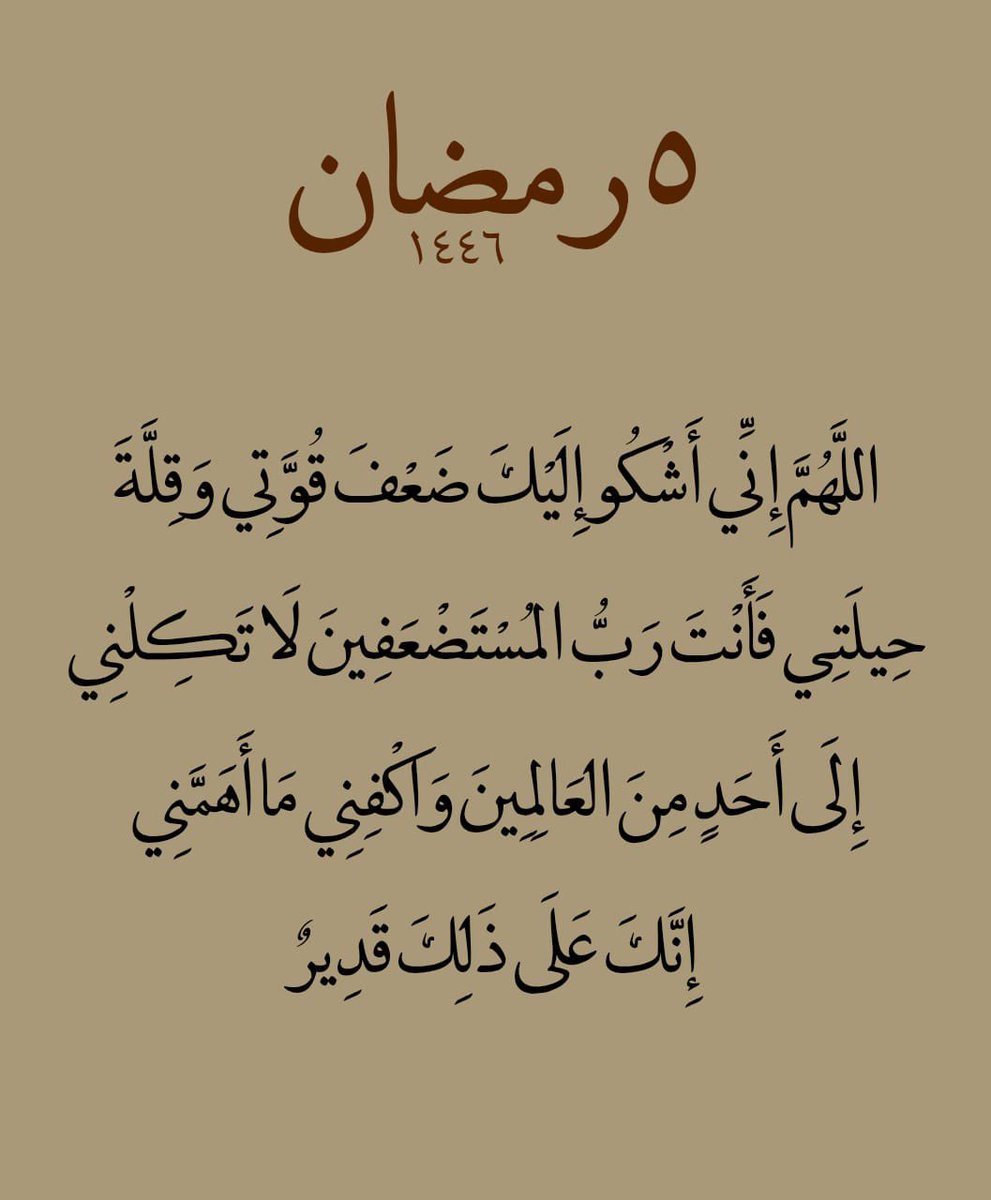 ٥ رمضان
١٤٤٦
اللَّهُمَّ إِنِّي أَشْكُو إِلَيْكَ ضَعْفَ قُوَّتِي وَقِلَّةَ
حِيلَتِي فَأَنْتَ رَبُّ المُسْتَضْعَفِينَ لَا تَكِلْنِي
إِلَى أَحَدٍ مِنَ العَالَمِينَ وَاكْفِنِي مَا أَهَمَّنِي
إِنَّكَ عَلَى ذَلِكَ قَدِيرٌ